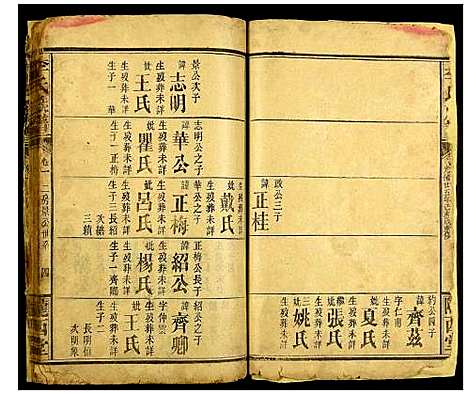 景公次子
諱志明
生歿葬未詳
妣王氏
生歿葬未詳
生子一 華
志明公之子
諱華公
生歿葬未詳
妣瞿氏
生歿葬未詳
生子一正梅
政公三子
諱正桂
華公之子
諱正梅
生歿葬未詳
妣呂氏
生歿葬未詳
生子三長紹
次繼
三續
妣戴氏
生歿葬未詳
正梅公長子
諱紹公
生歿葬未詳
妣楊氏
生歿葬未詳
生子一齊卿
約公四子
諱齊茲
字仁甫
妣夏氏
張氏
姚氏
紹公之子
諱齊卿
字仲雲
生歿葬未詳
妣王氏
生歿葬未詳
生子二
長明恒
次明象
卷一 二房景公世系 四
隴西堂